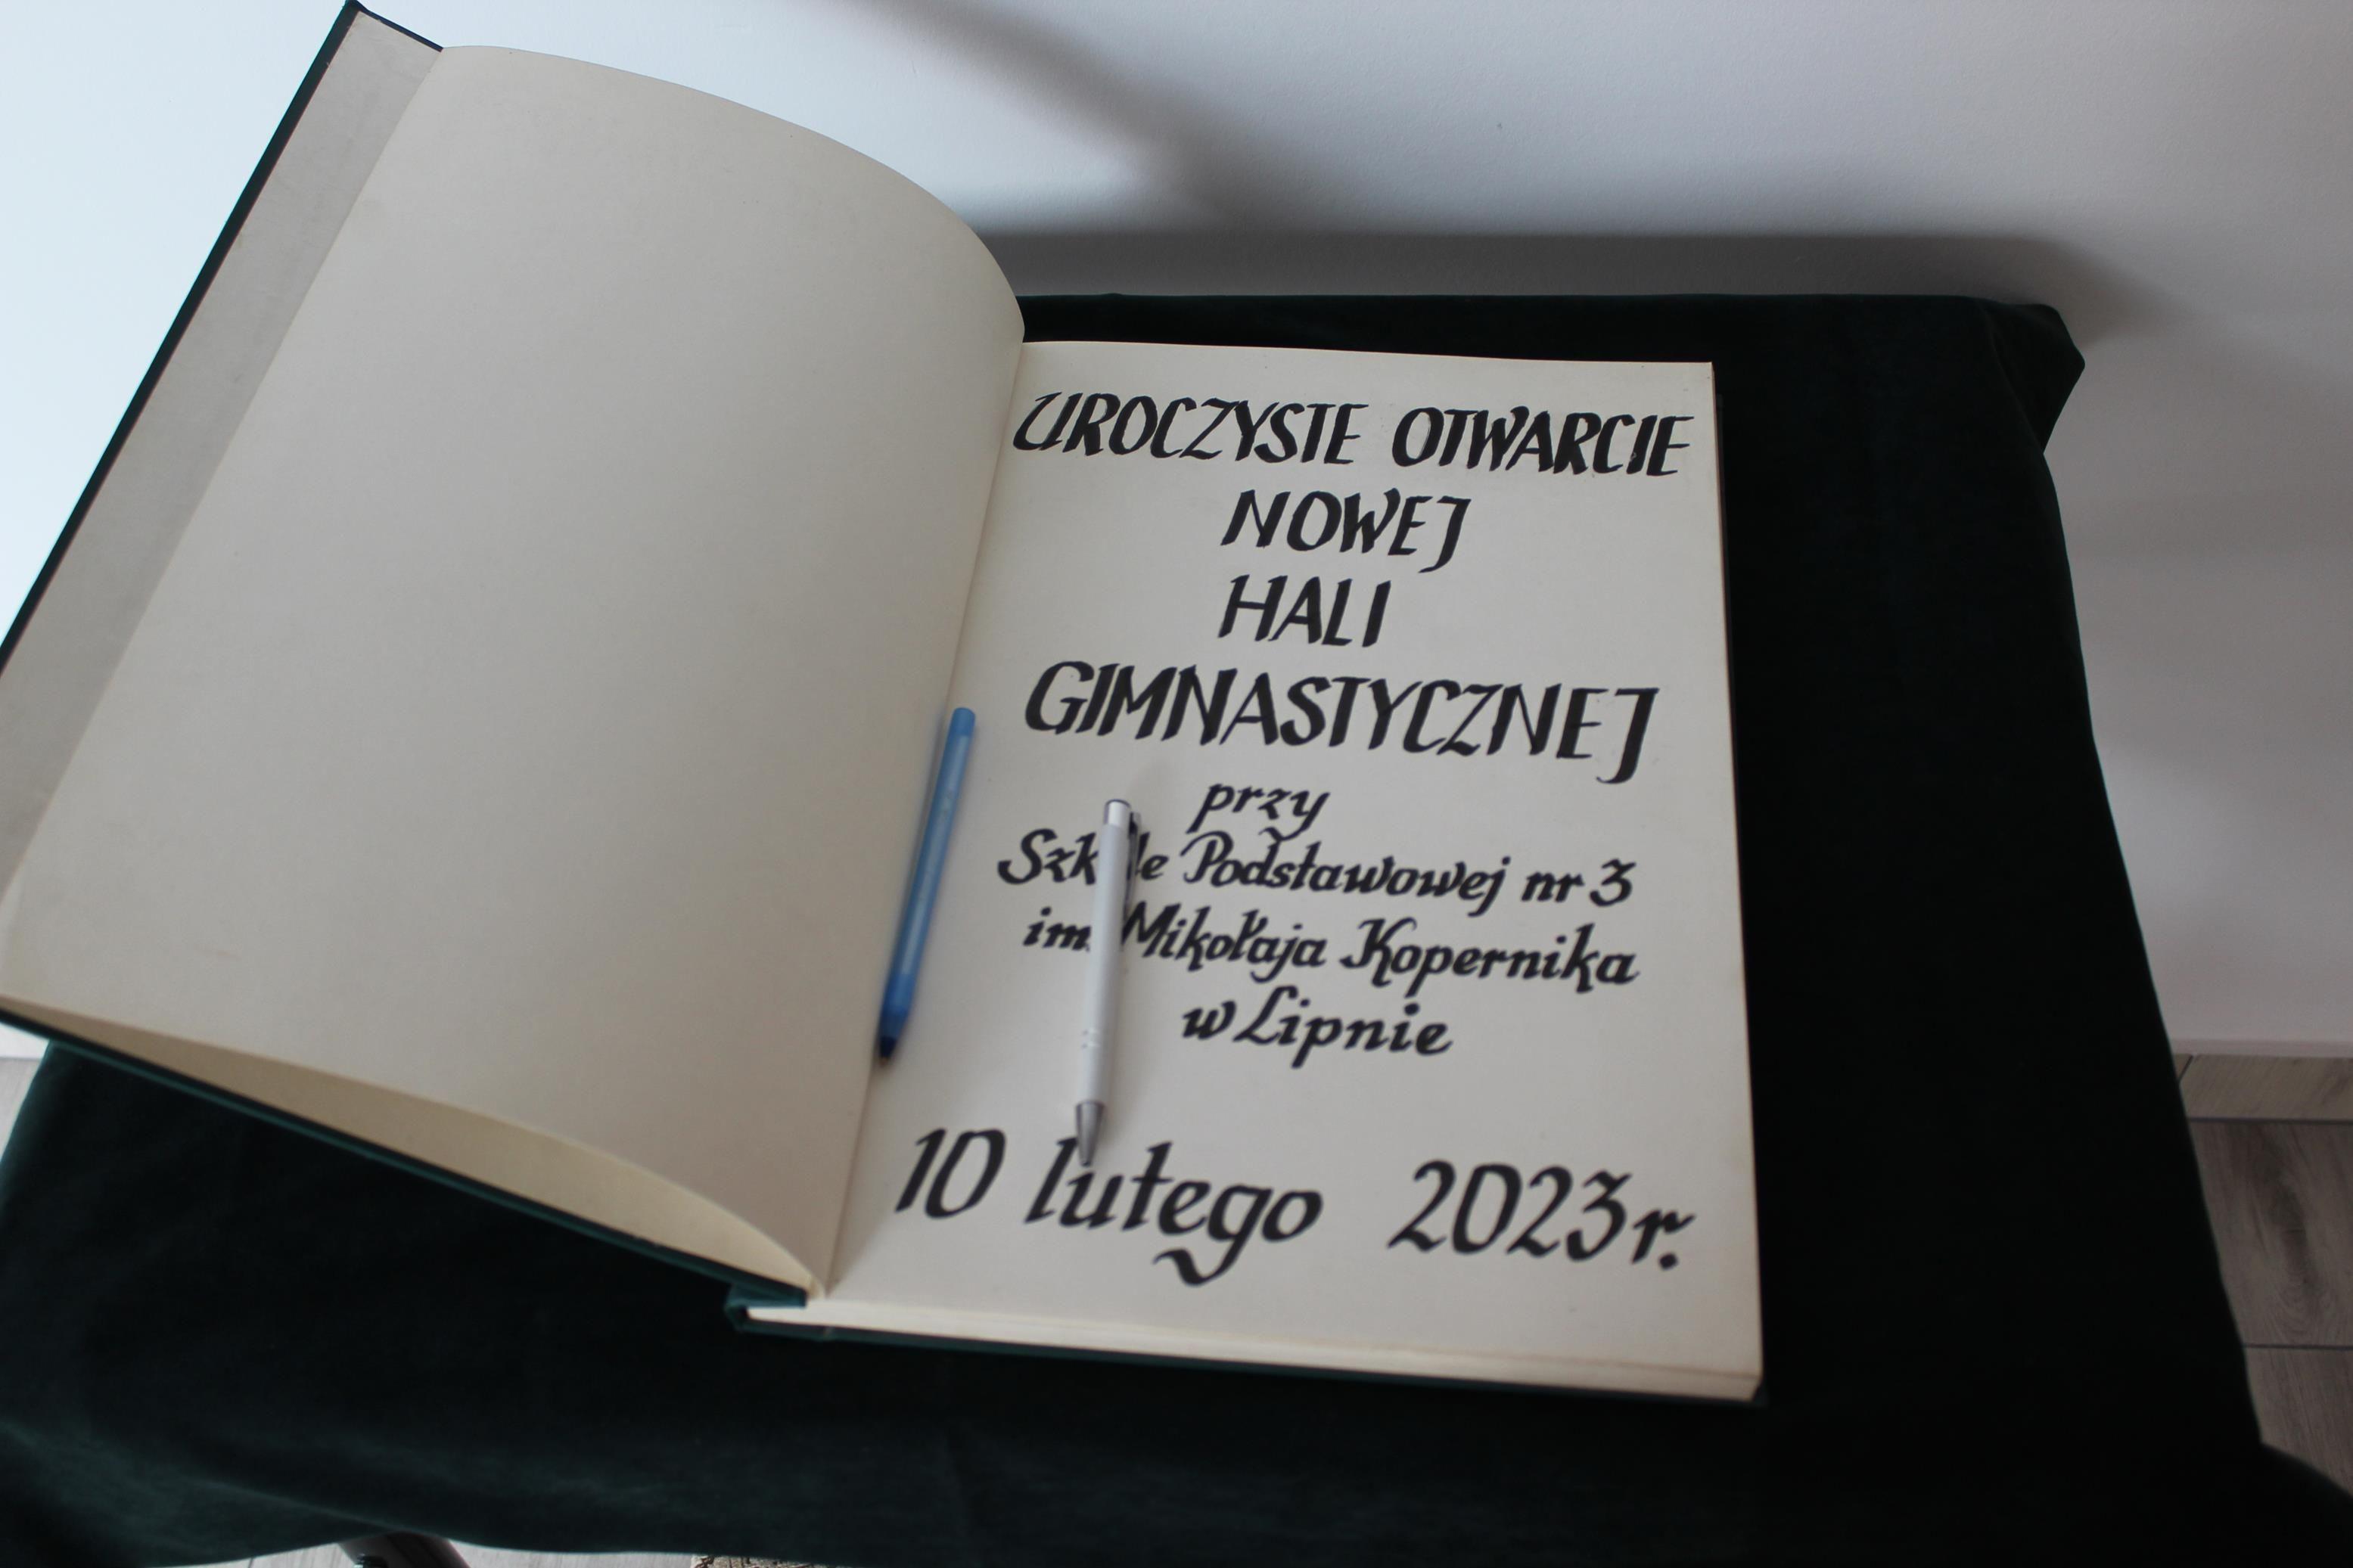 UROCZYSTE OTWARCIE
NOWEJ
HALI
GIMNASTYCZNEJ
przy
Szkole Podstawowej nr 3
im. Mikołaja Kopernika
w Lipnie
10 lutego 2023 r.